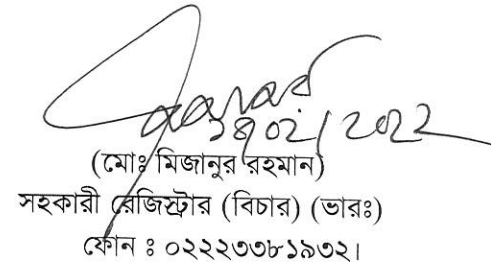 ০২/২০২২
(মোঃ মিজানুর রহমান)
সহকারী রেজিস্ট্রার (বিচার) (ভারঃ)
ফোন ঃ ০২২২৩৩৮১৯৩২।